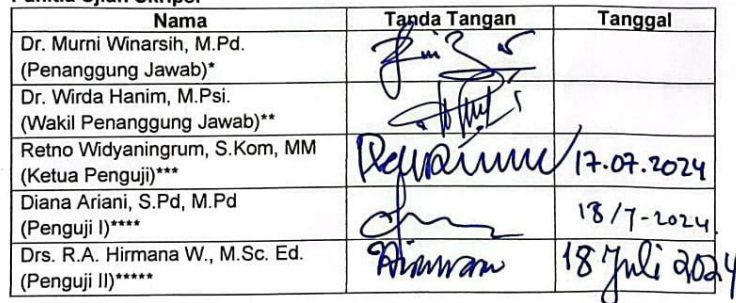 Panitia Ujian Skripsi
Nama Tanda Tangan Tanggal
Dr. Murni Winarsih, M.Pd.
(Penanggung Jawab)*
Dr. Wirda Hanim, M.Psi.
(Wakil Penanggung Jawab)**
Retno Widyaningrum, S.Kom, MM
(Ketua Penguji)*** 17.07.2024
Diana Ariani, S.Pd, M.Pd
(Penguji I)**** 18/7-2024
Drs. R.A. Hirmana W., M.Sc. Ed.
(Penguji II)***** 18 Juli 2024